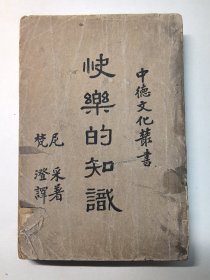 中德文化叢書
快樂的知識
尼采著
梵澄譯